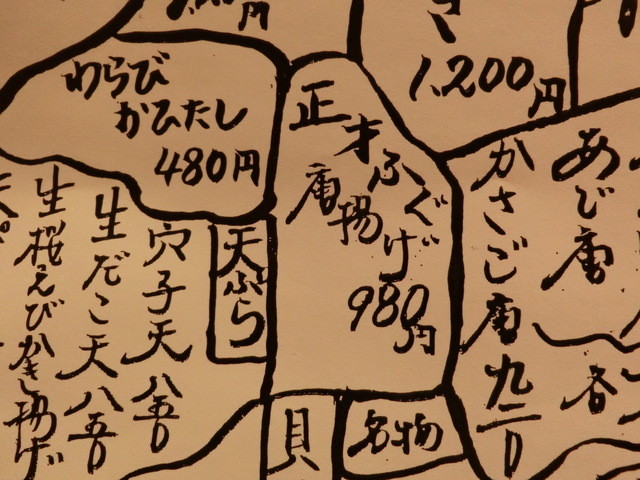 1,200円
あじ唐
かさご唐 九二〇
正才ふぐ
唐揚げ
980円
名物
貝
わらび
おひたし
480円
天ぷら
穴子天 八五〇
生だこ天 八五〇
生桜えびかき揚げ